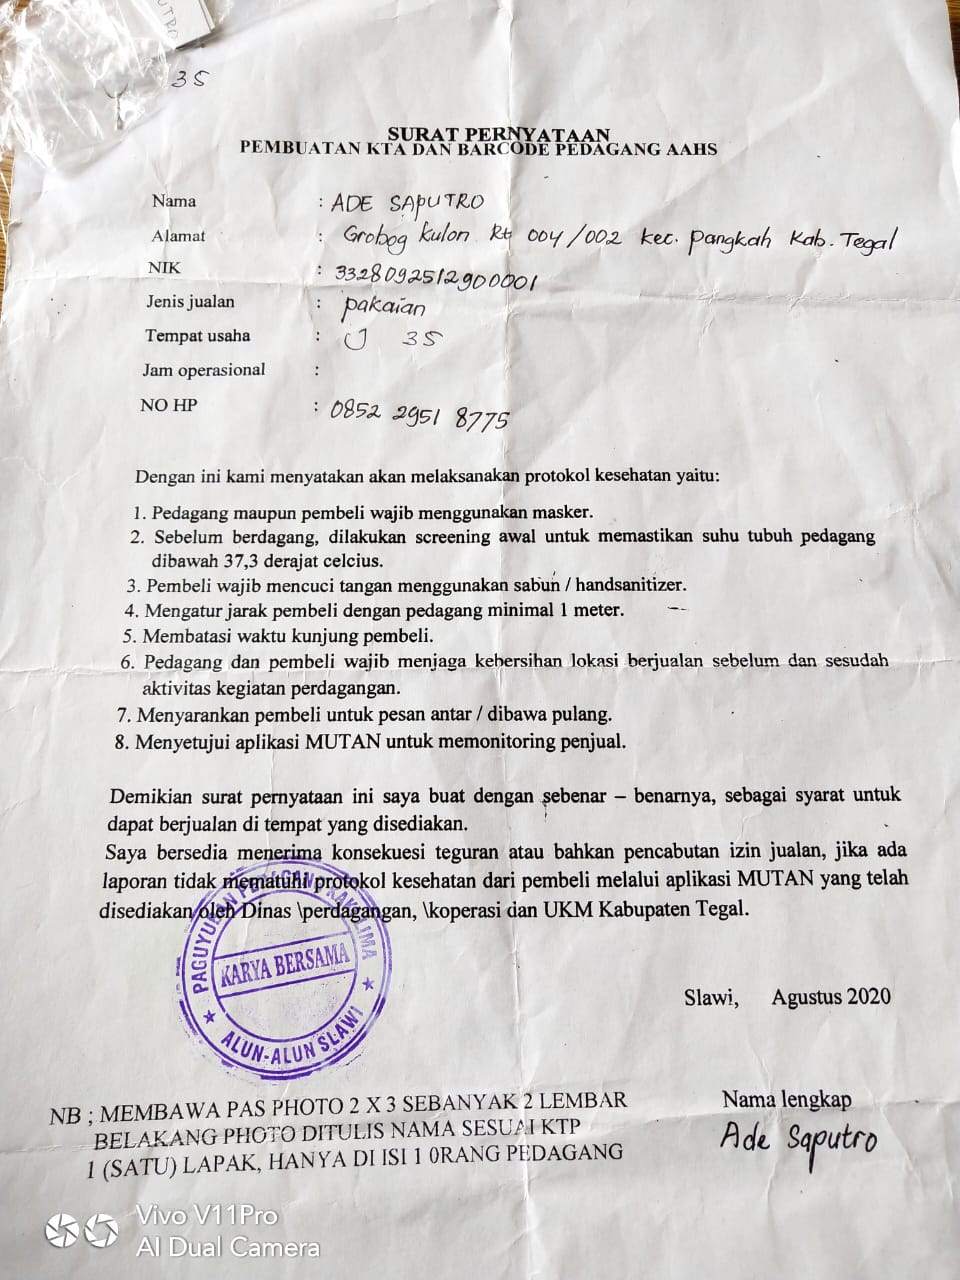 UTRO
35
SURAT PERNYATAAN
PEMBUATAN KTA DAN BARCODE PEDAGANG AAHS
Nama : ADE SAPUTRO
Alamat : Grobog Kulon Rt 004/002 kec. Pangkah Kab. Tegal
NIK : 3328092512900001
Jenis jualan : pakaian
Tempat usaha : U 35
Jam operasional :
NO HP : 0852 2951 8775
Dengan ini kami menyatakan akan melaksanakan protokol kesehatan yaitu:
1. Pedagang maupun pembeli wajib menggunakan masker.
2. Sebelum berdagang, dilakukan screening awal untuk memastikan suhu tubuh pedagang
dibawah 37,3 derajat celcius.
3. Pembeli wajib mencuci tangan menggunakan sabun / handsanitizer.
4. Mengatur jarak pembeli dengan pedagang minimal 1 meter.
5. Membatasi waktu kunjung pembeli.
6. Pedagang dan pembeli wajib menjaga kebersihan lokasi berjualan sebelum dan sesudah
aktivitas kegiatan perdagangan.
7. Menyarankan pembeli untuk pesan antar / dibawa pulang.
8. Menyetujui aplikasi MUTAN untuk memonitoring penjual.
Demikian surat pernyataan ini saya buat dengan sebenar – benarnya, sebagai syarat untuk
dapat berjualan di tempat yang disediakan.
Saya bersedia menerima konsekuesi teguran atau bahkan pencabutan izin jualan, jika ada
laporan tidak mematuhi protokol kesehatan dari pembeli melalui aplikasi MUTAN yang telah
disediakan oleh Dinas \perdagangan, \koperasi dan UKM Kabupaten Tegal.
PAGUYUBAN PEDAGANG KAKI LIMA
KARYA BERSAMA
ALUN-ALUN SLAWI
Slawi, Agustus 2020
NB ; MEMBAWA PAS PHOTO 2 X 3 SEBANYAK 2 LEMBAR
BELAKANG PHOTO DITULIS NAMA SESUAI KTP
1 (SATU) LAPAK, HANYA DI ISI 1 0RANG PEDAGANG
Nama lengkap
Ade Saputro
Vivo V11Pro
AI Dual Camera